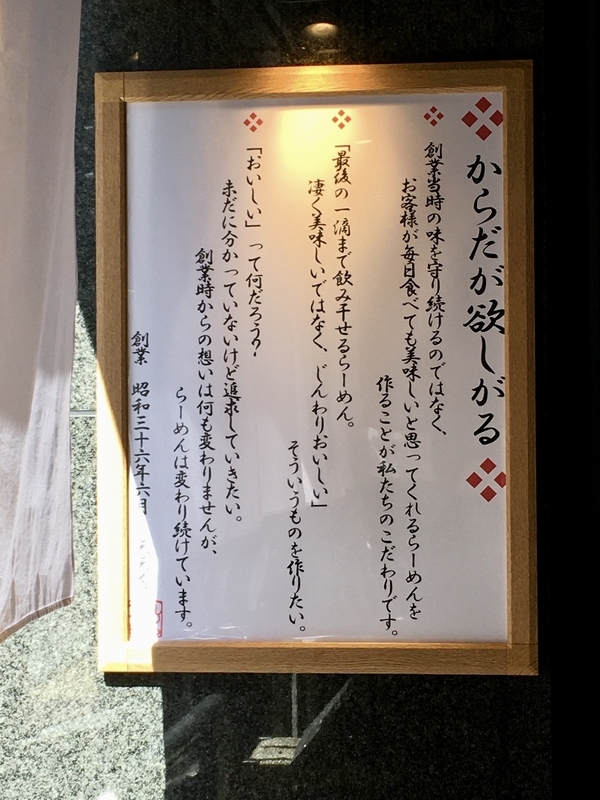 からだが欲しがる
創業当時の味を守り続けるのではなく、
お客様が毎日食べても美味しいと思ってくれるらーめんを
作ることが私たちのこだわりです。
「最後の一滴まで飲み干せるらーめん。
凄く美味しいではなく、じんわりおいしい」
そういうものを作りたい。
「おいしい」って何だろう?
未だに分かっていないけど追求していきたい。
創業時からの想いは何も変わりませんが、
らーめんは変わり続けています。
創業 昭和三十六年六月